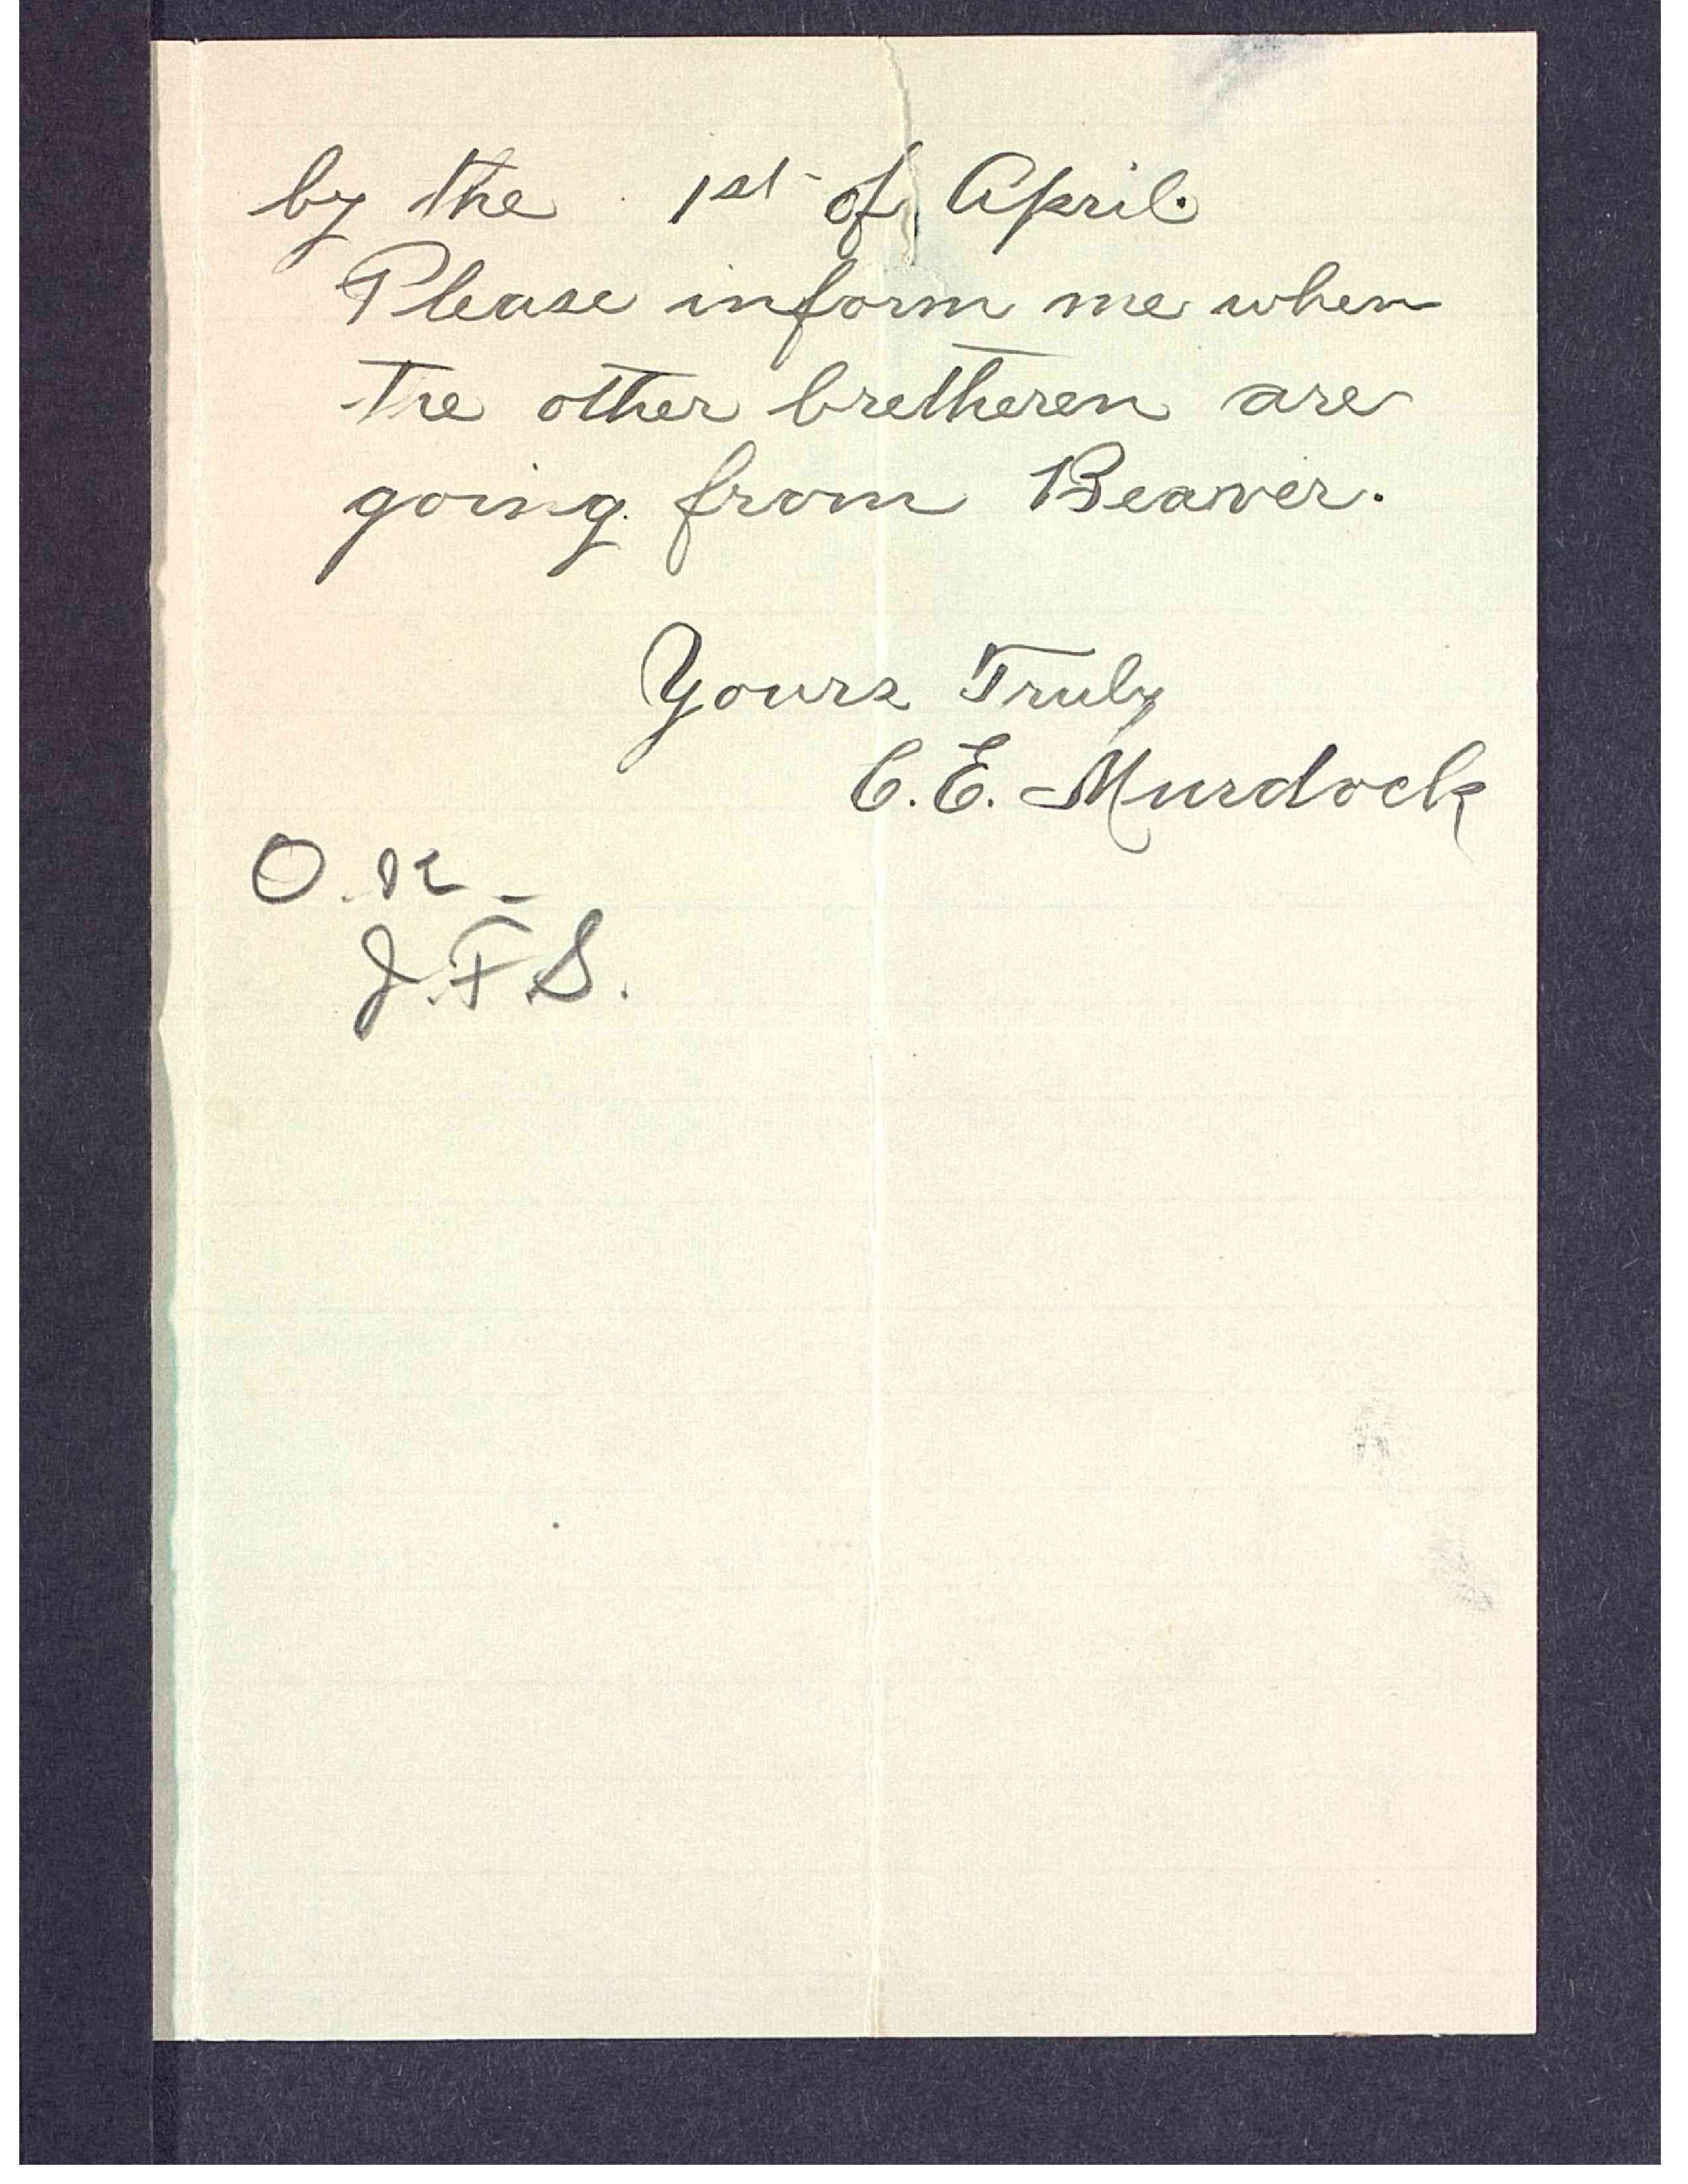 by the 1st of April.
Please inform me when
the other bretheren are
going from Beaver.
Yours Truly
C. E. Murdock
O.K.
J.F.S.